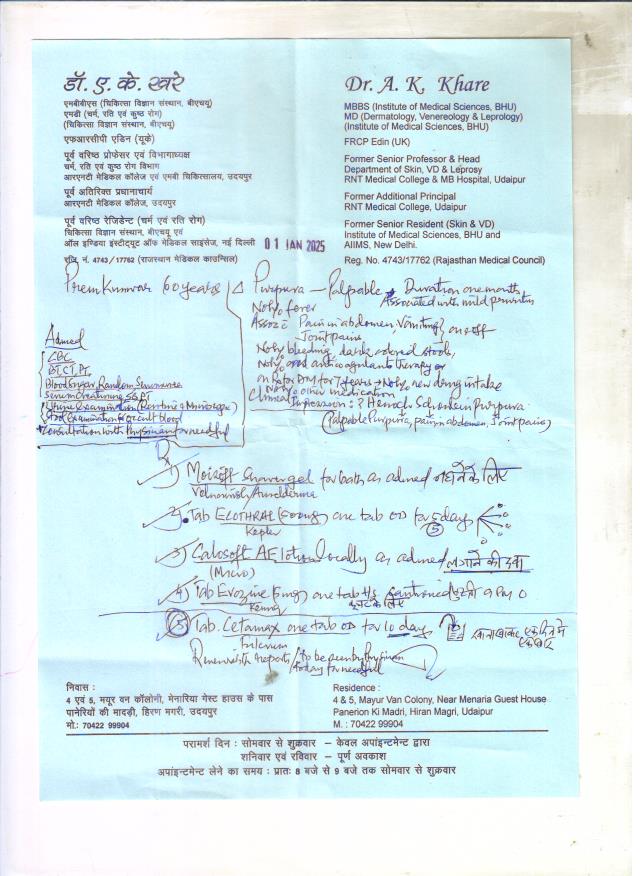 डॉ. ए. के. खरे
एमबीबीएस (चिकित्सा विज्ञान संस्थान, बीएचयू)
एमडी (चर्म, रति एवं कुष्ठ रोग)
(चिकित्सा विज्ञान संस्थान, बीएचयू)
एफआरसीपी एडिन (यूके)
पूर्व वरिष्ठ प्रोफेसर एवं विभागाध्यक्ष
चर्म, रति एवं कुष्ठ रोग विभाग
आरएनटी मेडिकल कॉलेज एवं एमबी चिकित्सालय, उदयपुर
पूर्व अतिरिक्त प्रधानाचार्य
आरएनटी मेडिकल कॉलेज, उदयपुर
पूर्व वरिष्ठ रेजिडेन्ट (चर्म एवं रति रोग)
चिकित्सा विज्ञान संस्थान, बीएचयू एवं
ऑल इण्डिया इंस्टीट्यूट ऑफ मेडिकल साइंसेज, नई दिल्ली
रजि. नं. 4743/17762 (राजस्थान मेडिकल काउन्सिल)
Dr. A. K. Khare
MBBS (Institute of Medical Sciences, BHU)
MD (Dermatology, Venereology & Leprology)
(Institute of Medical Sciences, BHU)
FRCP Edin (UK)
Former Senior Professor & Head
Department of Skin, VD & Leprosy
RNT Medical College & MB Hospital, Udaipur
Former Additional Principal
RNT Medical College, Udaipur
Former Senior Resident (Skin & VD)
Institute of Medical Sciences, BHU and
AIIMS, New Delhi.
Reg. No. 4743/17762 (Rajasthan Medical Council)
01 JAN 2025
Prem Kunwar 60 years
Δ Purpura — Palpable Duration one month
Associated with mild pruritus
No h/o fever
Assoz c̄ Pain in abdomen, Vomiting } on & off
Joint pains
No h/o bleeding, dark colored stools,
No h/o anticoagulants therapy or
on Rx for DM for 7 years → No h/o new drug intake
No h/o other medication
Clinical Impression: ? Henoch Schonlein Purpura
(Palpable Purpura, pain in abdomen, Joint pains)
Advised
CBC
BT, CT, PT
Blood sugar Random
Serum Creatinine SGPT
Urine Examination (Routine & Microscopic)
Stool Examination for occult blood
Consultation with Physician for needful
Rx
1) Moisoft Shower gel for bath as advised नहाने के लिए
2) Tab (500mg) one tab OD for 5 days
3) Calosoft AF lotion locally as advised लगाने की दवा
(Micro)
4) Tab Evozine (5mg) one tab HS 9 PM
5) Tab. Cetamax one tab OD for 10 days
Fulcrum
Review with reports / to be seen by Physician
today for needful
निवास :
4 एवं 5, मयूर वन कॉलोनी, मेनारिया गेस्ट हाउस के पास
पानेरियों की मादड़ी, हिरण मगरी, उदयपुर
मो.: 70422 99904
Residence :
4 & 5, Mayur Van Colony, Near Menaria Guest House
Panerion Ki Madri, Hiran Magri, Udaipur
M. : 70422 99904
परामर्श दिन : सोमवार से शुक्रवार – केवल अपांइन्टमेन्ट द्वारा
शनिवार एवं रविवार – पूर्ण अवकाश
अपांइन्टमेन्ट लेने का समय : प्रातः 8 बजे से 9 बजे तक सोमवार से शुक्रवार